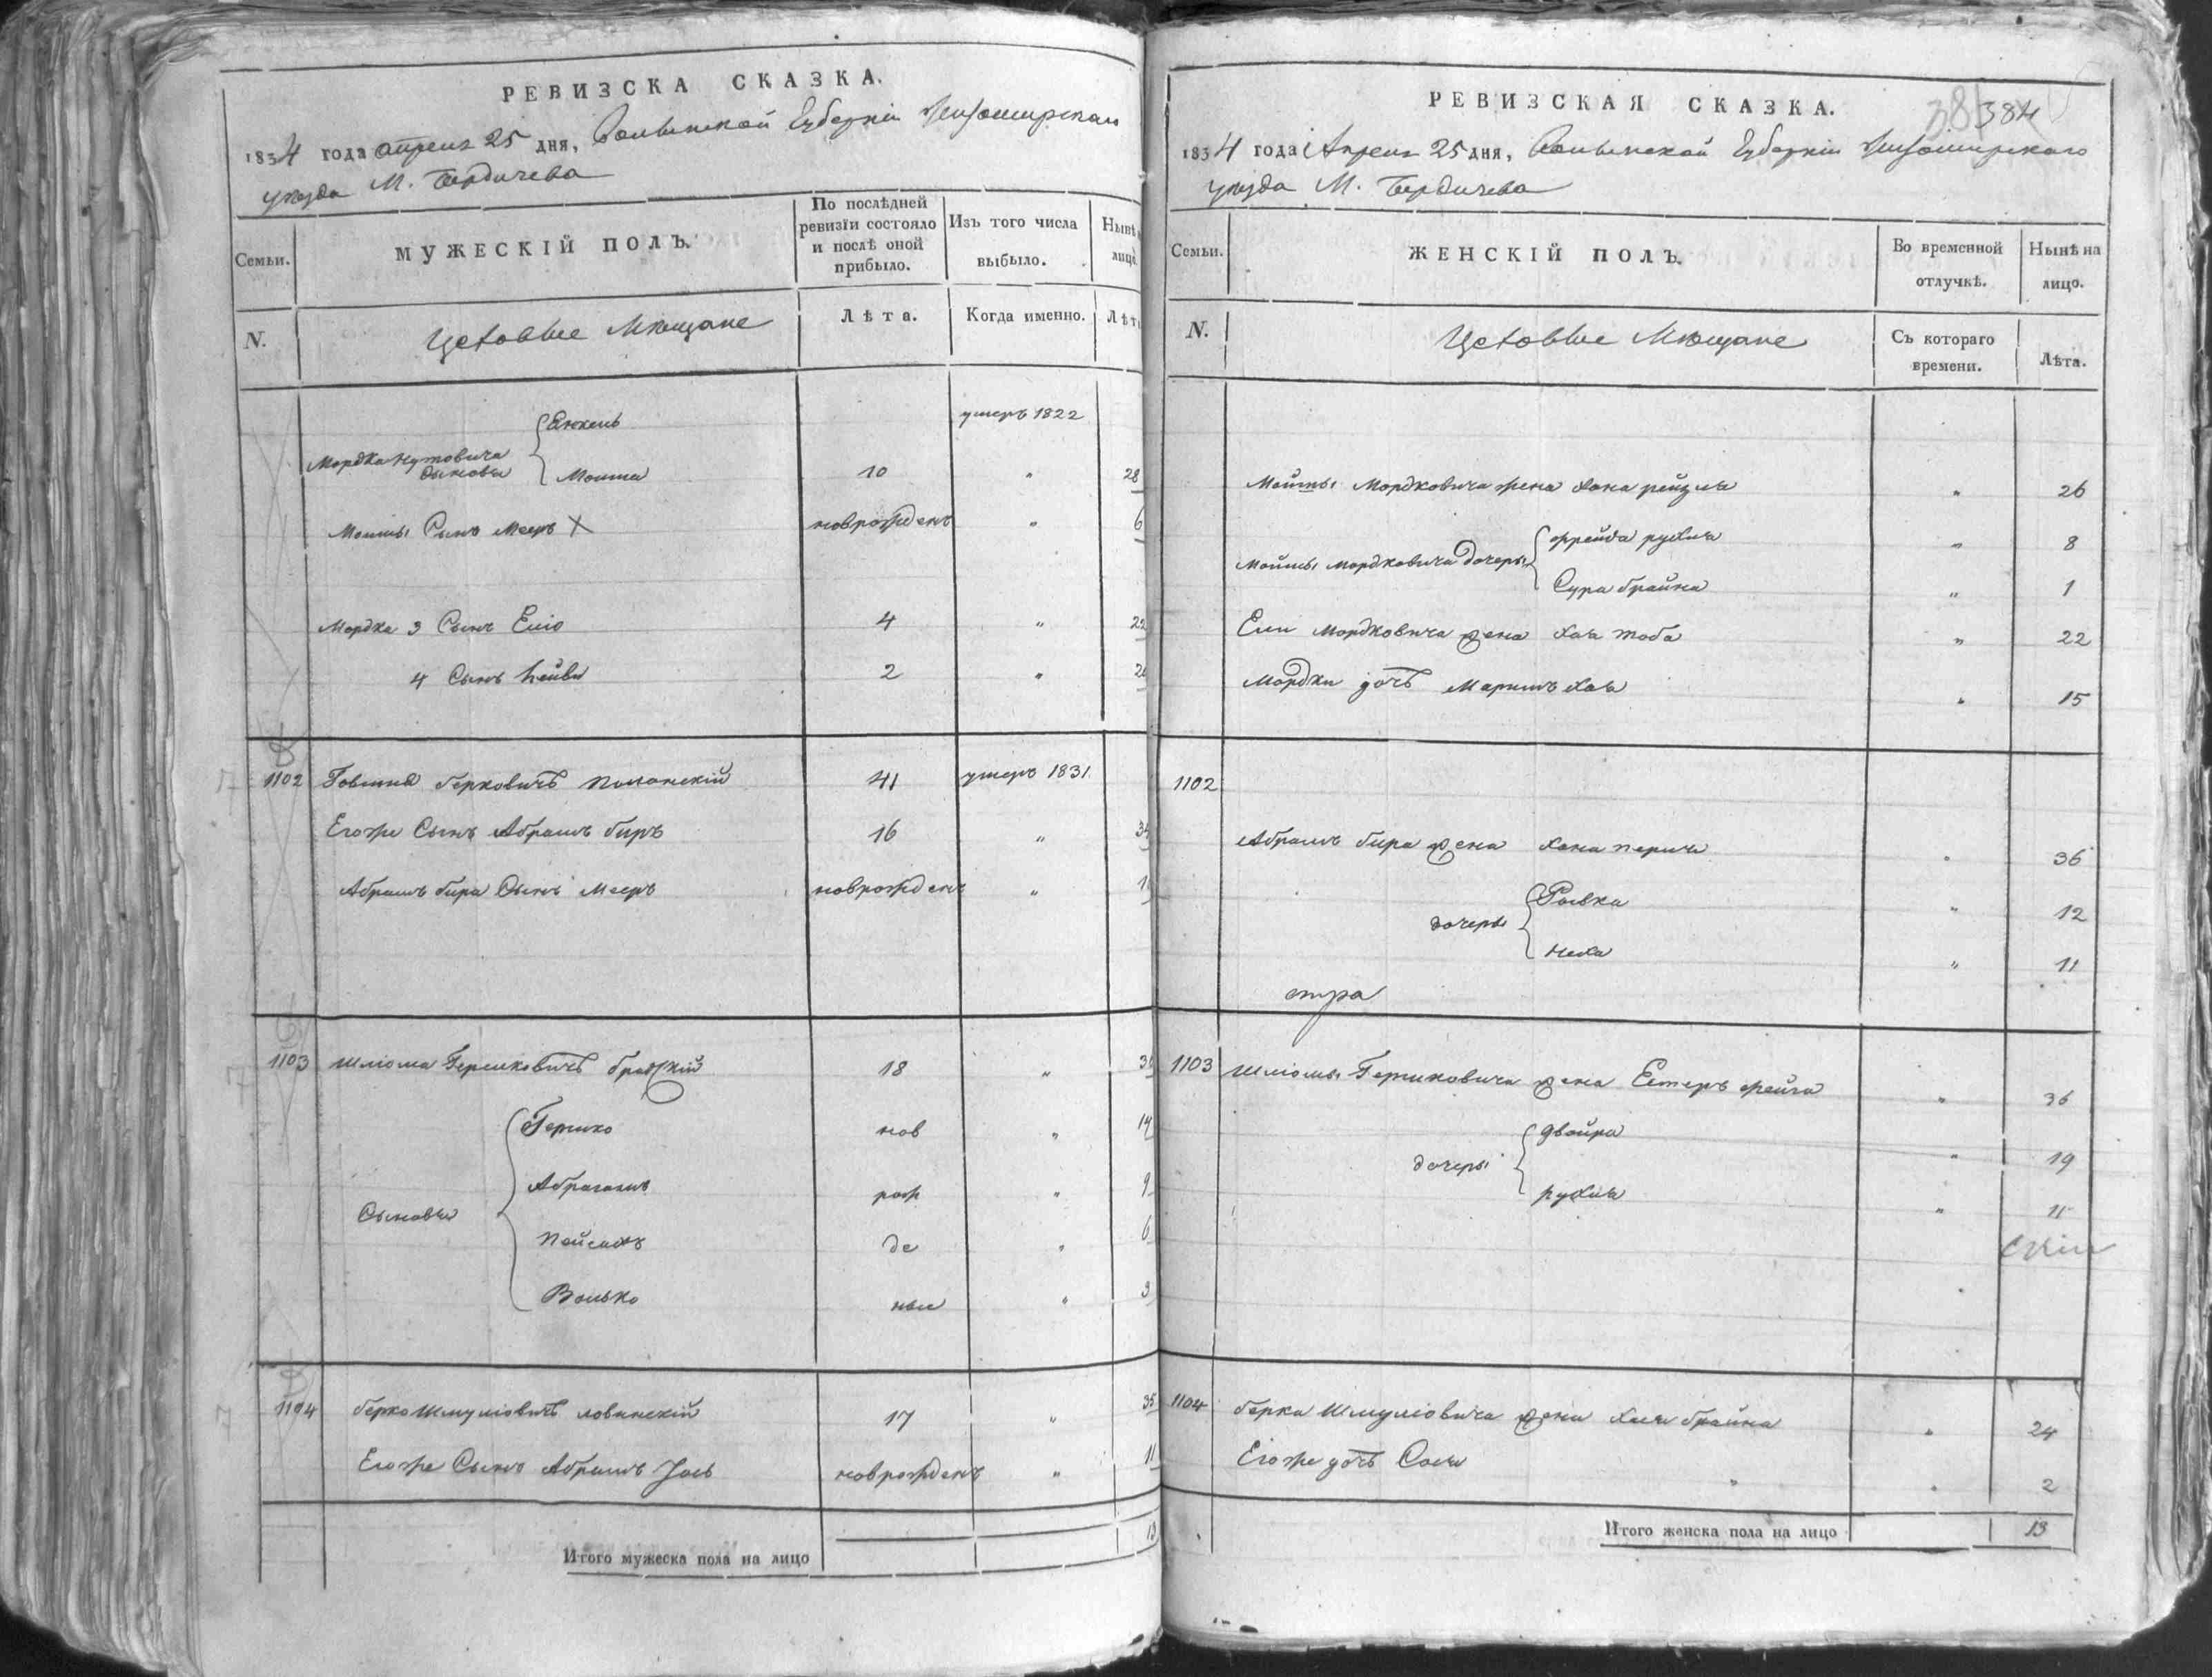 РЕВИЗСКА СКАЗКА.
1834 года апреля 25 дня, Волынской Губернiи Житомирскаго
уезда М. Бердичева
Семьи.
МУЖЕСКIЙ ПОЛЪ.
По послѣдней ревизiи состояло и послѣ оной прибыло.
Изъ того числа выбыло.
Нынѣ
лицо.
N.
Лѣта.
Когда именно.
Лѣт
Мѣщане
умеръ 1822
Мордка
сыновья
Мошка 10 " 28
Мошки Сынъ Мееръ X новрожденъ " 6
Мордка 3 Сынъ Елiо 4 " 22
4 Сынъ Лейви 2 " 20
1102 Говшия Берковичъ 41 умеръ 1831
Егоже Сынъ Абрамъ Беръ 16 " 34
Абрамъ Бера Сынъ Мееръ новрожденъ "
1103 Шлiома Гершковичъ Бродскiй 18 " 36
Сыновья
Гершко нов " 14
Абрагамъ рож " 9
Пейсахъ де " 6
Волько ные " 3
1104 Берко Шмулiовичъ 17 " 35
Егоже Сынъ Абрамъ Iось новрожденъ " 11
Итого мужеска пола на лицо 13
РЕВИЗСКАЯ СКАЗКА.
384
1834 года Апреля 25 дня, Волынской Губернiи Житомирскаго
уезда М. Бердичева
Семьи.
ЖЕНСКIЙ ПОЛЪ.
Во временной отлучкѣ.
Нынѣ на лицо.
N.
Съ котораго времени.
Лѣта.
Мѣщане
Мошки Мордковича жена Хана рейзля " 26
Мошки Мордковича дочеры
фрейда рухля " 8
Сура брайна " 1
Ели Мордковича жена Хая тоба " 22
Мордки дочь Маримъ Хая " 15
1102
Абрамъ Бера жена Хана перля " 36
дочеры
Рывка " 12
Неха " 11
1103 Шлiомы Гершковича жена Естеръ фейга " 36
дочеры
двойра " 19
рухля " 11
1104 Берка Шмулiовича жена Хая брайна " 24
Егоже дочь Сося " 2
Итого женска пола на лицо 13